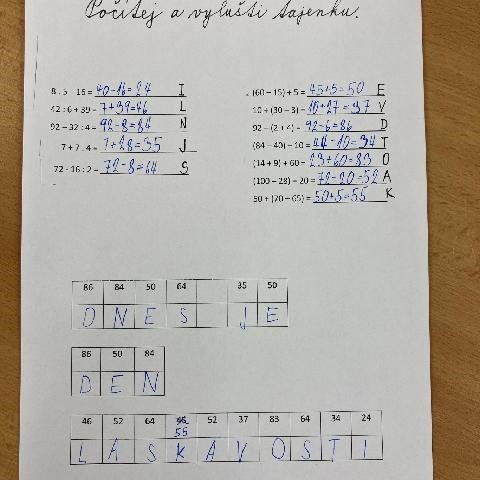 Počítej a vylušti tajenku.
8 . 5 – 16 = 40-16=24 I
42 : 6 + 39 = 7+39=46 L
92 – 32 : 4 = 92-8=84 N
7 + 7 . 4 = 7+28=35 J
72 – 16 : 2 = 72-8=64 S
(60 – 15) + 5 = 45+5=50 E
10 + (30 – 3) = 10+27=37 V
92 – (2 + 4) = 92-6=86 D
(84 – 40) – 10 = 44-10=34 T
(14 + 9) + 60 = 23+60=83 O
(100 – 28) – 20 = 72-20=52 A
50 + (70 – 65) = 50+5=55 K
86 84 50 64 35 50
D N E S J E
86 50 84
D E N
46 52 64 46 52 37 83 64 34 24
55
L A S K A V O S T I